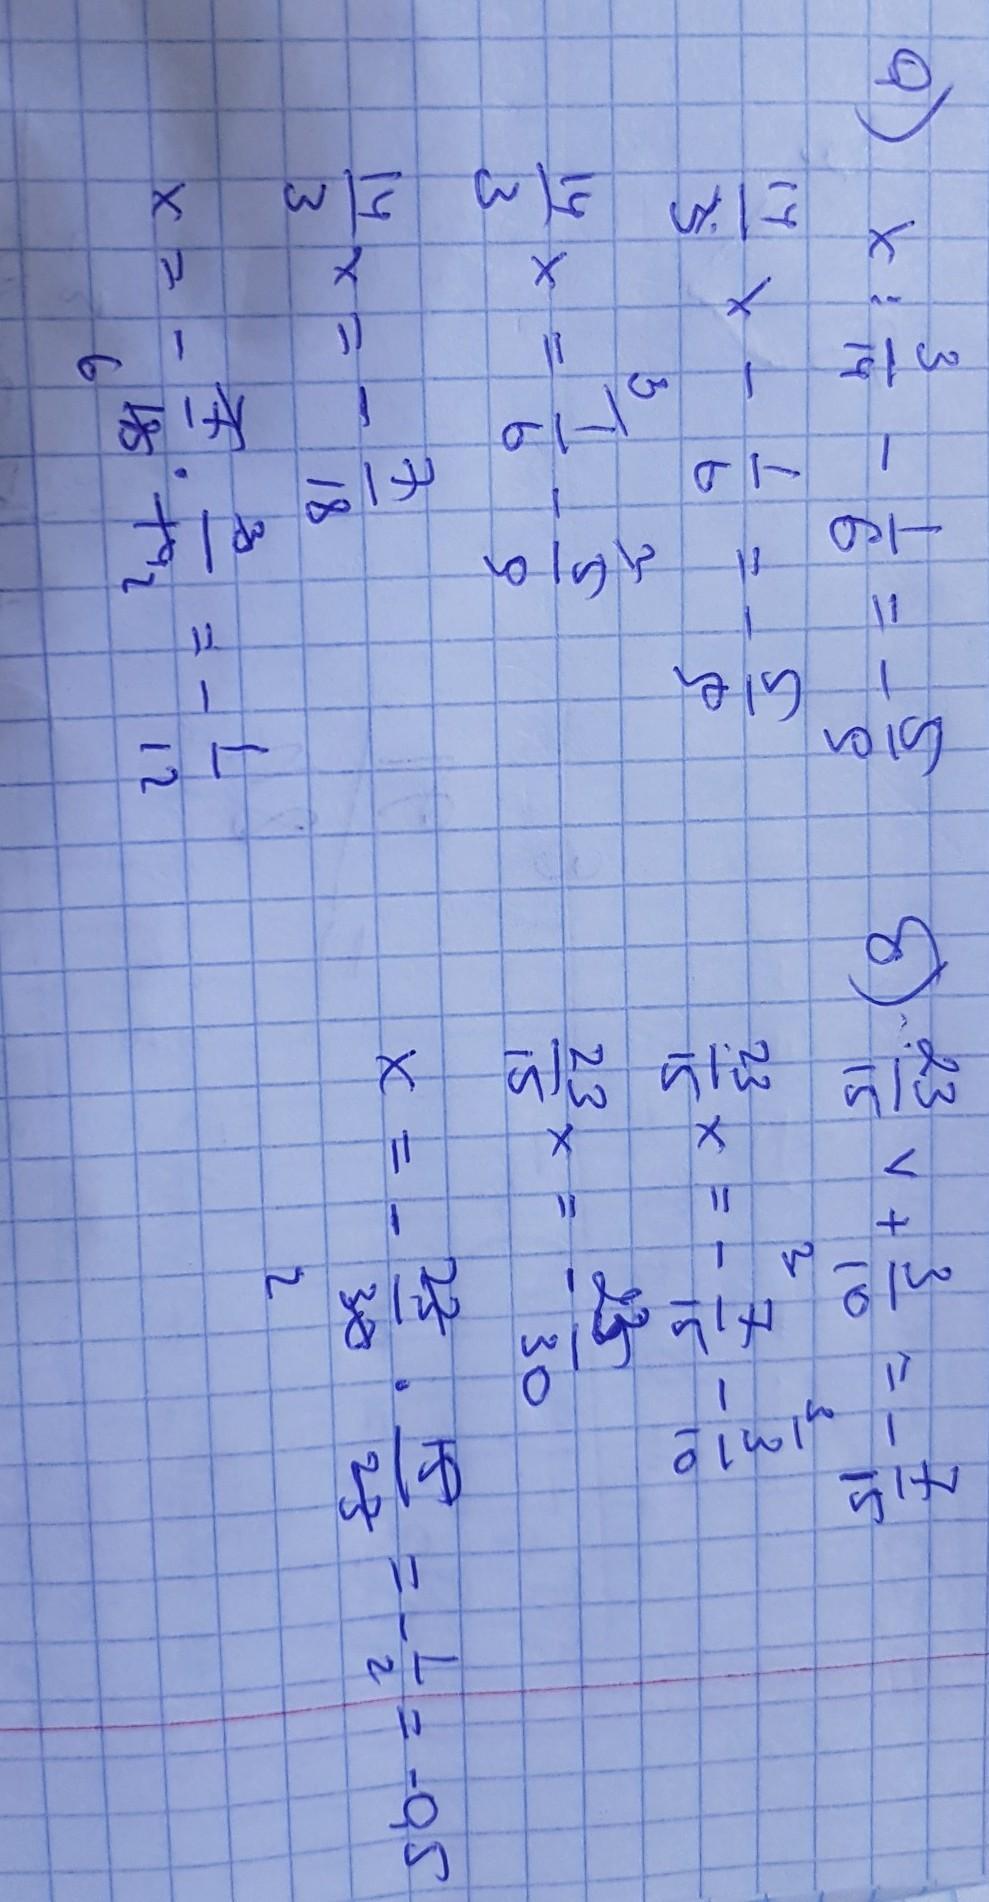 а) x : 3/14 - 1/6 = - 5/9
14/3 x - 1/6 = - 5/9
14/3 x = 1/6 - 5/9
14/3 x = - 7/18
x = - 7/18 · 3/14 = - 1/12
б) 23/15 v + 3/10 = - 7/15
23/15 x = - 7/15 - 3/10
23/15 x = - 23/30
x = - 23/30 · 15/23 = - 1/2 = -0,5